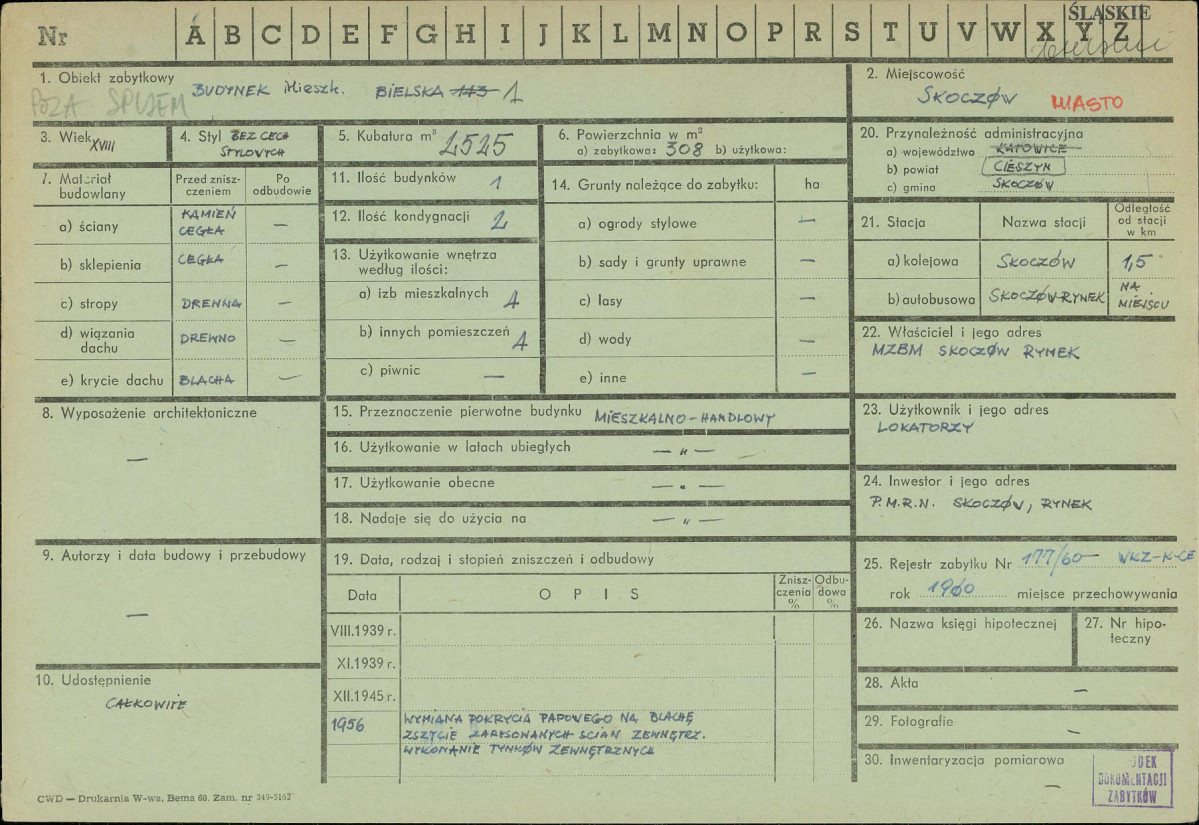 Nr A B C D E F G H I J K L M N O P R S T U V W X Y Z
ŚLĄSKIE
1. Obiekt zabytkowy
BUDYNEK Mieszk. BIELSKA 113 1
POZA SPISEM
2. Miejscowość
SKOCZÓW MIASTO
3. Wiek XVIII
4. Styl BEZ CECH
STYLOWYCH
5. Kubatura m³ 2525
6. Powierzchnia w m²
a) zabytkowa: 308 b) użytkowa:
7. Materiał
budowlany
Przed znisz-
czeniem
Po
odbudowie
a) ściany KAMIEŃ
CEGŁA —
b) sklepienia CEGŁA —
c) stropy DREWNA —
d) wiązania
dachu DREWNO —
e) krycie dachu BLACHA —
8. Wyposażenie architektoniczne
—
9. Autorzy i data budowy i przebudowy
—
10. Udostępnienie
CAŁKOWITE
11. Ilość budynków 1
12. Ilość kondygnacji 2
13. Użytkowanie wnętrza
według ilości:
a) izb mieszkalnych 4
b) innych pomieszczeń 4
c) piwnic —
14. Grunty należące do zabytku: ha
a) ogrody stylowe —
b) sady i grunty uprawne —
c) lasy —
d) wody —
e) inne —
15. Przeznaczenie pierwotne budynku MIESZKALNO-HANDLOWY
16. Użytkowanie w latach ubiegłych — „ —
17. Użytkowanie obecne — „ —
18. Nadaje się do użycia na — „ —
19. Data, rodzaj i stopień zniszczeń i odbudowy
Data OPIS Znisz-
czenia
% Odbu-
dowa
%
VIII.1939 r.
XI.1939 r.
XII.1945 r.
1956 WYMIANA POKRYCIA PAPOWEGO NA BLACHĘ
ZSZYCIE ZARYSOWANYCH ŚCIAN ZEWNĘTRZ.
WYKONANIE TYNKÓW ZEWNĘTRZNYCH
20. Przynależność administracyjna
a) województwo KATOWICE
b) powiat CIESZYN
c) gmina SKOCZÓW
21. Stacja Nazwa stacji Odległość
od stacji
w km
a) kolejowa SKOCZÓW 1,5
b) autobusowa SKOCZÓW-RYNEK NA
MIEJSCU
22. Właściciel i jego adres
MZBM SKOCZÓW RYNEK
23. Użytkownik i jego adres
LOKATORZY
24. Inwestor i jego adres
P.M.R.N. SKOCZÓW, RYNEK
25. Rejestr zabytku Nr 177/60 WKZ-K-CE
rok 1960 miejsce przechowywania
26. Nazwa księgi hipotecznej
27. Nr hipo-
teczny
28. Akta —
29. Fotografie —
30. Inwentaryzacja pomiarowa
—
ODEK
DOKUMENTACJI
ZABYTKÓW
CWD — Drukarnia W-wa, Bema 60. Zam. nr 349-5152